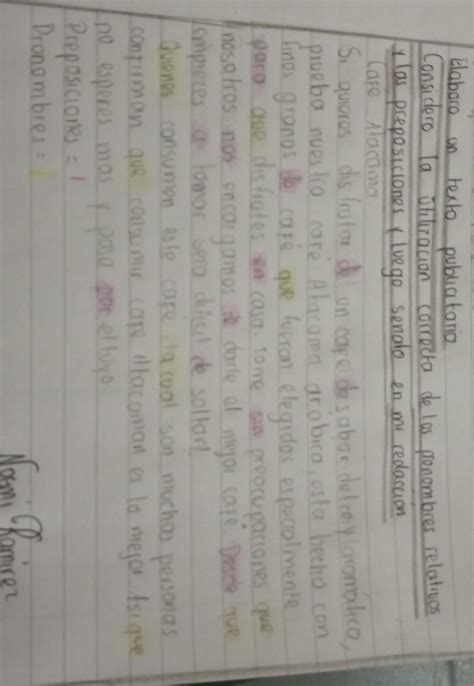 Elaboro un texto publicitario
Considero la utilización correcta de los ponombres relativos
y las preposiciones y luego señalo en mi redacción
Cafe Atacama
Si quieres disfrutar de un cafe de sabor dulce y aromático,
prueba nuestro café Atacama arábica, esta hecho con
finos granos de café que fueron elegidos especialmente
para que disfrutes en casa tome sin preocupaciones que
nosotros nos encargamos de darle el mejor café Desde que
empieces a tomar sera dificil de soltar!
Quienes consumen este cafe la cual son muchas personas
confirman que consumir cafe es la mejor asi que
no esperes mas y pasa por el tuyo
Preposiciones = 1
Pronombres = 1
Noemi Ramirez